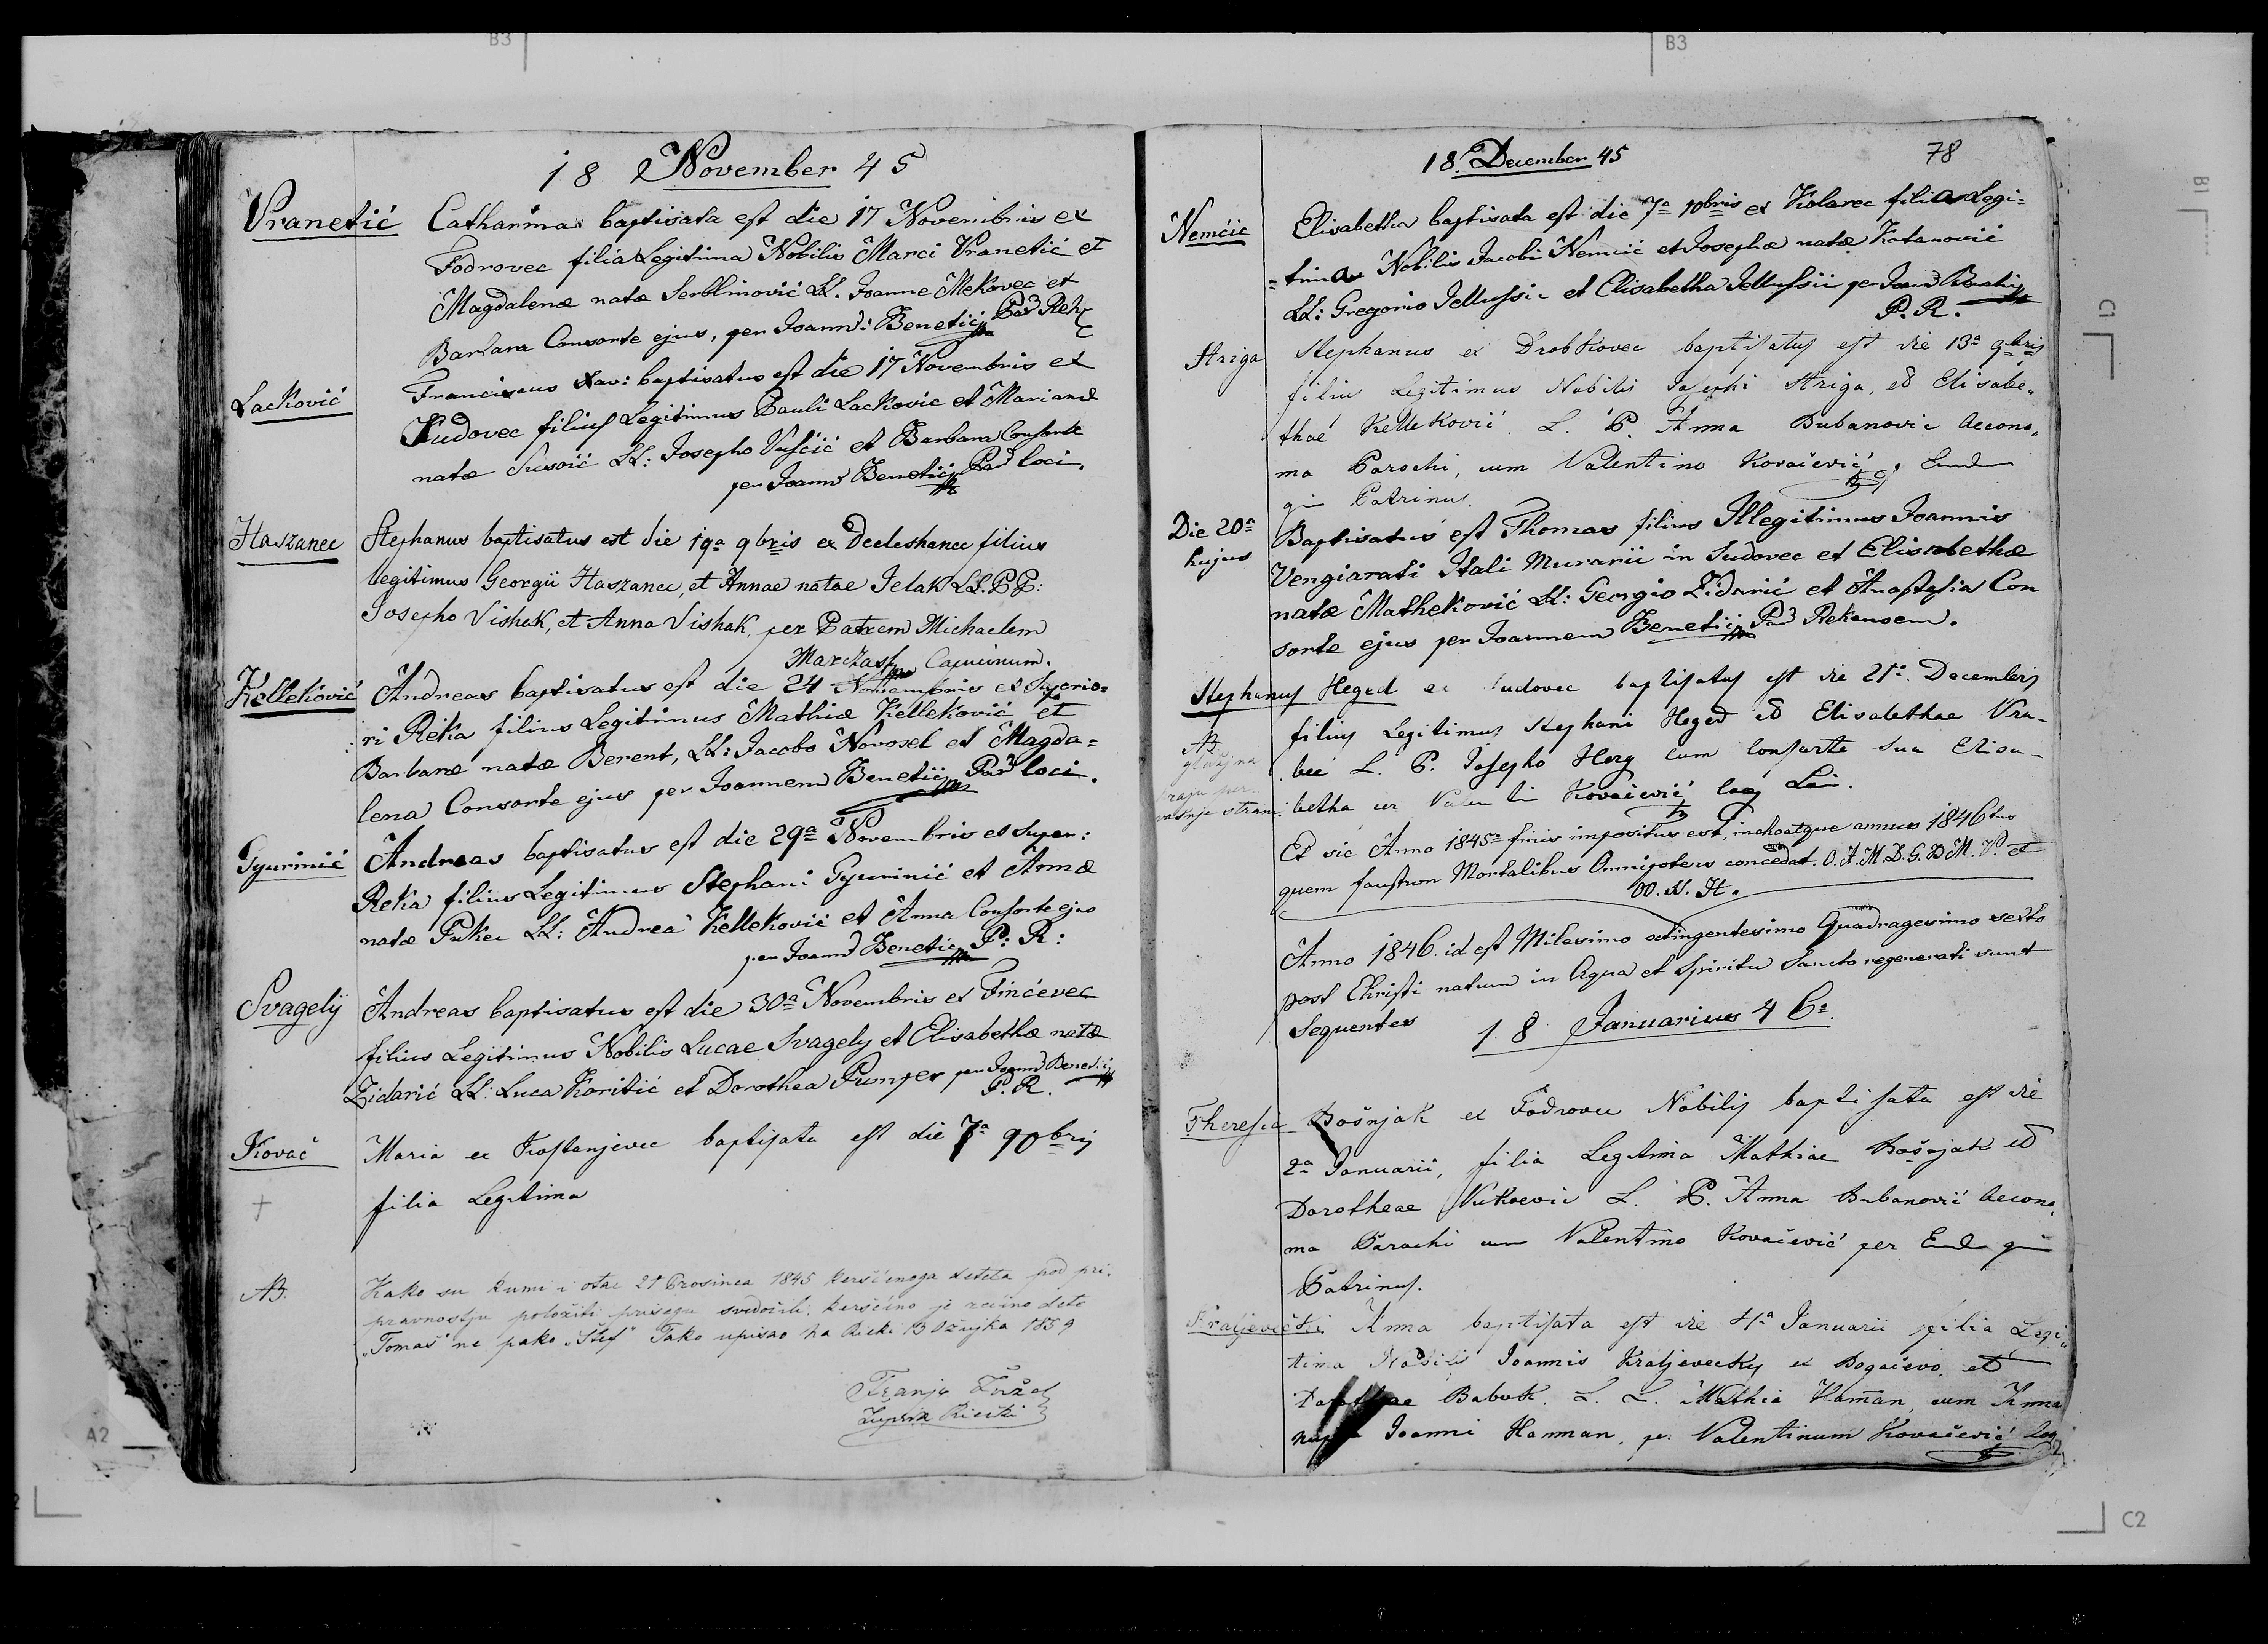 B3
18 November 45
Vranetić Catharina baptisata est die 17 Novembris ex
Fodrovec filia Legitima Nobilis Marci Vranetić et
Magdalenæ natæ Serblinović LL. Joanne Mekovec et
Barbara Consorte ejus, per Joann: Benetić Par Rek
Lacković Franciscus Xav: baptisatus est die 17 Novembris ex
Kudovec filius Legitimus Pauli Lacković et Marianæ
natæ Susoić LL: Josepho Vuscić et Barbara Consorte
per Joann Benetić Par loci.
Haszanec Stephanus baptisatus est die 19a 9bris ex Decleshanec filius
legitimus Georgii Haszanec, et Annae natae Jelak LL. PP:
Josepho Vishak, et Anna Vishak, per Patrem Michaelem
Capucinum.
Kelleković Andreas baptisatus est die 24 Novembris ex Superio=
ri Reka filius Legitimus Mathiæ Kelleković et
Barbaræ natæ Berent, LL: Jacobo Novosel et Magda=
lena Consorte ejus per Joannem Benetić Par loci.
Gyurinić Andreas baptisatus est die 29a Novembris ex Super:
Reka filius Legitimus Stephani Gyurinić et Annæ
natæ Fukec LL: Andrea Kelleković et Anna Consorte ejus
per Joann Benetić P: R:
Svagely Andreas baptisatus est die 30a Novembris ex Finčevec
filius Legitimus Nobilis Lucae Svagely et Elisabethæ natæ
Zidarić LL: Luca Koritić et Dorothea Pumper per Joann Benetić
P. R.
Kovač Maria ex Kostanjevec baptisata est die 7a 90bris
filia Legitima
NB. Kako su kumi i otac 21 Prosinca 1845 keršćenoga deteta pod pri=
pravnostju položiti prisegu svedočili, keršćeno je rečeno dete
"Tomaš" ne pako "Štef" Tako upisao na Rieki 13 Ožujka 1859
Franjo
Župnik Riečki
A2
B3
18. December 45
78
Nemčić Elisabetha baptisata est die 7a 10bris ex Kolarec filia Legi=
=tima Nobilis Jacobi Nemčić et Josephæ natæ Katanović
LL: Gregorio Jellussić et Elisabetha Jellussić per Joann Benetić
P. R.
Striga Stephanus ex Drobkovec baptisatus est die 13a 9bris
filius Legitimus Nobilis Josephi Striga, et Elisabe=
thae Kelleković. L. P. Anna Bubanović Aecono=
ma Parochi, cum Valentino Kovačević, Eund
qui Patrinus.
Die 20a hujus Baptisatus est Thomas filius Illegitimus Joannis
Vengiarati Itali Murarii in Ludovec et Elisabethæ
natæ Matheković LL: Georgio Zidarić et Anastasia Con
sorte ejus per Joannem Benetić Par Rekensem.
Stephanus Heged ex Ludovec baptisatus est die 21a Decembris
filius Legitimus Stephani Heged et Elisabethae Vra=
bec L. P. Josepho Herg cum Consorte sua Elisa=
betha per Valentin Kovačević
NB
gledaj na
kraju per=
vašnje strani.
Et sic Anno 1845o finis impositus est, inchoatque annus 1846tus
quem faustum Mortalibus Omnipotens concedat. O. A. M. D. G. B. M. V. et
OO. SS. H.
Anno 1846. id est Milesimo octingentesimo Quadragesimo sexto
post Christi natum in Aqua et Spiritu Sancto regenerati sunt
Sequentes
18 Januarius 46o
Theresia Bošnjak ex Fodrovec Nobilis baptisata est die
2a Januarii, filia Legitima Mathiae Bošnjak et
Dorotheae Vukoević L. P. Anna Bubanović Aecono=
ma Parochi cum Valentino Kovačević per Eund qui
Patrinus.
Kraljevečki Anna baptisata est die 4a Januarii filia Legi=
tima Nobilis Joannis Kraljevecky ex Bogačevo, et
Dorotheae Babok. L. L. Mathia Hamman, cum Anna
nupta Joanni Hamman, per Valentinum Kovačević
B1
C1
C2